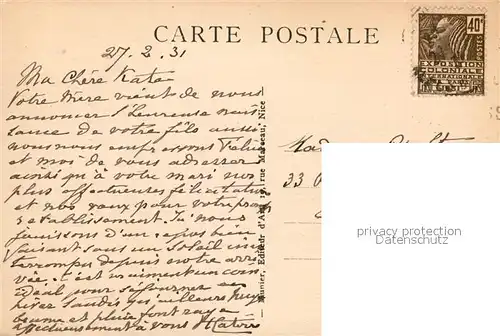 CARTE POSTALE
27.2.31
40c
POSTES
EXPOSITION
COLONIALE
INTERNATIONALE
PARIS 1931
Ma Chère Kate
Votre Mère vient de nous
annoncer l'heureuse nais
sance de votre fils aussi
nous nous empressons
et moi de vous adresser
ainsi qu'à votre mari nos
plus affectueuses félicitations
et nos vœux pour votre prompt
rétablissement. Ici nous
jouissons d'un repos bien
faisant sous un Soleil inin
terrompu depuis notre arri
vée. C'est vraiment un coin
idéal pour séjourner en
hiver tandis qu'ailleurs
brume et pluie font rage
affectueusement à vous
Munier, Editeur d'Art, rue Masséna, Nice
Madame
33
privacy protection
Datenschutz